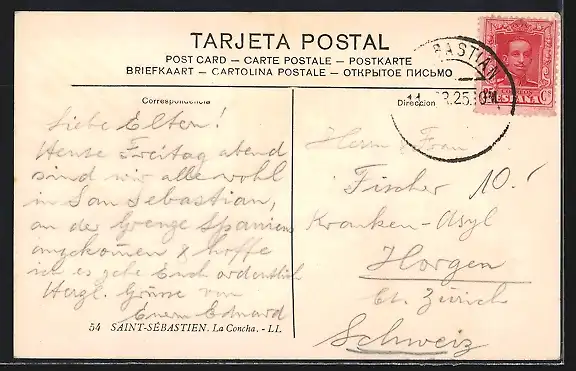 TARJETA POSTAL
POST CARD – CARTE POSTALE – POSTKARTE
BRIEFKAART – CARTOLINA POSTALE – ОТКРЫТОЕ ПИСЬМО
BASTIAN
25
CORREOS
ESPAÑA
Correspondencia
Direccion
Liebe Eltern!
Heute Freitag abend
sind wir alle wohl
in San Sebastian,
an der Grenze Spaniens
angekommen & hoffe
ich es gehe Euch ordentlich
Herzl. Grüsse von
Eurem Eduard
Herrn & Frau
Fischer 10.
Kranken-Asyl
Horgen
Ct. Zürich
Schweiz
54 SAINT-SÉBASTIEN. La Concha. - LL